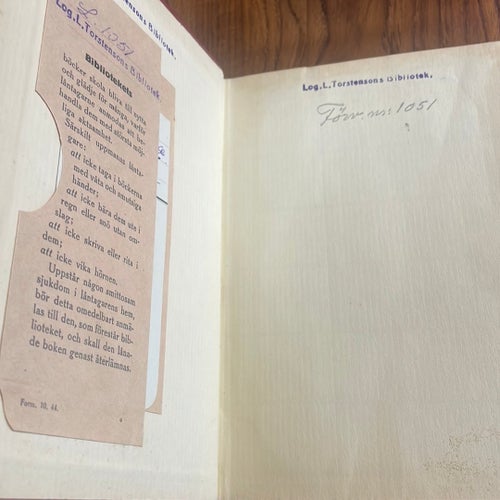 L. 1051
Log.L.Torstensons Bibliotek.
Bibliotekets
böcker skola bliva till nytta
och glädje för många, varför
låntagarne anmodas att be-
handla dem med största möj-
liga aktsamhet.
Särskilt uppmanas lånta-
gare:
att icke taga i böckerna
med våta och smutsiga
händer;
att icke bära dem ute i
regn eller snö utan om-
slag;
att icke skriva eller rita i
dem;
att icke vika hörnen.
Uppstår någon smittosam
sjukdom i låntagarens hem,
bör detta omedelbart anmä-
las till den, som förestår bib-
lioteket, och skall den låna-
de boken genast återlämnas.
Form. 10. 44.
Log.L.Torstensons Bibliotek.
Förv. nr: 1051